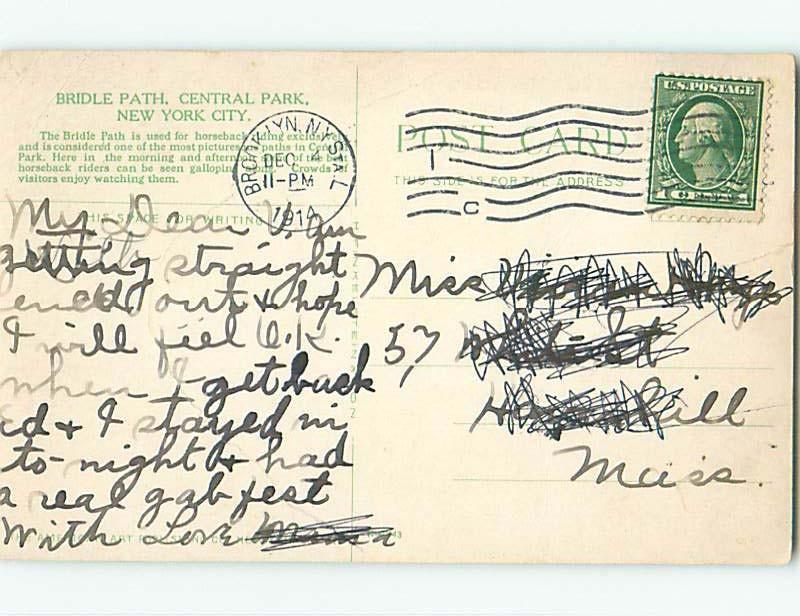 BRIDLE PATH, CENTRAL PARK,
NEW YORK CITY.
The Bridle Path is used for horseback riding exclusively
and is considered one of the most picturesque paths in Central
Park. Here in the morning and afternoon of the best
horseback riders can be seen galloping Crowds of
visitors enjoy watching them.
BROOKLYN, N.Y. STA. L
DEC 4
11-PM
1914
POST CARD
THIS SIDE IS FOR THE ADDRESS
1
C
U.S. POSTAGE
THIS SPACE FOR WRITING
My Dear V, am
getting straight
ened out & hope
I will feel O.K.
when I get back
Ed & I stayed in
to-night & had
a real gab fest
With Love Mama
Miss
57 St
Haverhill
Mass.
AMERICAN ART PUBLISHING CO.